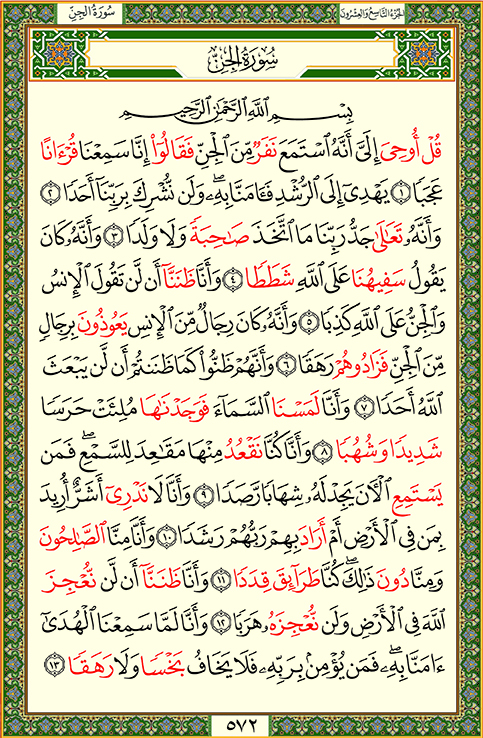 سُورَةُ الجِنِّ
الجُزْءُ التَّاسِعُ وَالعِشْرُونَ
سُورَةُ الجِنِّ
بِسْمِ ٱللَّهِ ٱلرَّحْمَٰنِ ٱلرَّحِيمِ
قُلْ أُوحِىَ إِلَىَّ أَنَّهُ ٱسْتَمَعَ نَفَرٌ مِّنَ ٱلْجِنِّ فَقَالُوٓا۟ إِنَّا سَمِعْنَا قُرْءَانًا
عَجَبًا ١ يَهْدِىٓ إِلَى ٱلرُّشْدِ فَـَٔامَنَّا بِهِۦ ۖ وَلَن نُّشْرِكَ بِرَبِّنَآ أَحَدًا ٢
وَأَنَّهُۥ تَعَٰلَىٰ جَدُّ رَبِّنَا مَا ٱتَّخَذَ صَٰحِبَةً وَلَا وَلَدًا ٣ وَأَنَّهُۥ كَانَ
يَقُولُ سَفِيهُنَا عَلَى ٱللَّهِ شَطَطًا ٤ وَأَنَّا ظَنَنَّآ أَن لَّن تَقُولَ ٱلْإِنسُ
وَٱلْجِنُّ عَلَى ٱللَّهِ كَذِبًا ٥ وَأَنَّهُۥ كَانَ رِجَالٌ مِّنَ ٱلْإِنسِ يَعُوذُونَ بِرِجَالٍ
مِّنَ ٱلْجِنِّ فَزَادُوهُمْ رَهَقًا ٦ وَأَنَّهُمْ ظَنُّوا۟ كَمَا ظَنَنتُمْ أَن لَّن يَبْعَثَ
ٱللَّهُ أَحَدًا ٧ وَأَنَّا لَمَسْنَا ٱلسَّمَآءَ فَوَجَدْنَٰهَا مُلِئَتْ حَرَسًا
شَدِيدًا وَشُهُبًا ٨ وَأَنَّا كُنَّا نَقْعُدُ مِنْهَا مَقَٰعِدَ لِلسَّمْعِ ۖ فَمَن
يَسْتَمِعِ ٱلْـَٔانَ يَجِدْ لَهُۥ شِهَابًا رَّصَدًا ٩ وَأَنَّا لَا نَدْرِىٓ أَشَرٌّ أُرِيدَ
بِمَن فِى ٱلْأَرْضِ أَمْ أَرَادَ بِهِمْ رَبُّهُمْ رَشَدًا ١٠ وَأَنَّا مِنَّا ٱلصَّٰلِحُونَ
وَمِنَّا دُونَ ذَٰلِكَ ۖ كُنَّا طَرَآئِقَ قِدَدًا ١١ وَأَنَّا ظَنَنَّآ أَن لَّن نُّعْجِزَ
ٱللَّهَ فِى ٱلْأَرْضِ وَلَن نُّعْجِزَهُۥ هَرَبًا ١٢ وَأَنَّا لَمَّا سَمِعْنَا ٱلْهُدَىٰٓ
ءَامَنَّا بِهِۦ ۖ فَمَن يُؤْمِنۢ بِرَبِّهِۦ فَلَا يَخَافُ بَخْسًا وَلَا رَهَقًا ١٣
٥٧٢